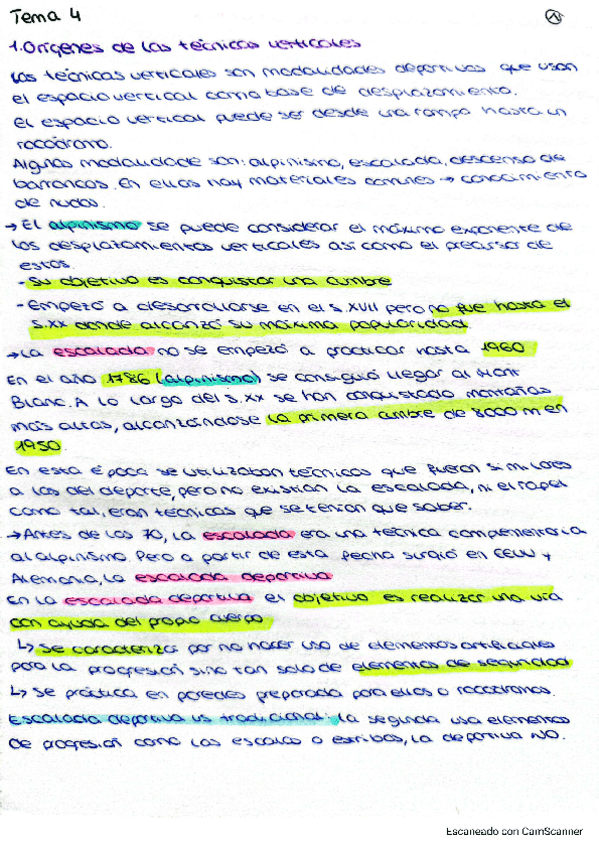 Tema 4
1. Orígenes de las técnicas verticales
Las técnicas verticales son modalidades deportivas que usan
el espacio vertical como base de desplazamiento.
El espacio vertical puede ser desde una rampa hasta un
rocódromo.
Algunas modalidade son: alpinismo, escalada, descenso de
barrancos. En ellas hay materiales comunes → conocimiento
de nudos.
→ El alpinismo se puede considerar el máximo exponente de
los desplazamientos verticales así como el precursor de
estos.
- Su objetivo es conquistar una cumbre
- Empezó a desarrollarse en el s. XVII pero no fue hasta el
s. XX donde alcanzó su máxima popularidad
→ La escalada no se empezó a practicar hasta 1960
En el año 1786 (alpinismo) se consiguió llegar al Mont
Blanc. A lo largo del s. XX se han conquistado montañas
más altas, alcanzándose la primera cumbre de 8000 m en
1950.
En esta época se utilizaban técnicas que fueron similares
a las del deporte, pero no existían la escalada, ni el rapel
como tal, eran técnicas que se tenían que saber.
→ Antes de los 70, la escalada era una técnica complementaria
al alpinismo. Pero a partir de esta fecha surgió en EEUU y
Alemania, la escalada deportiva
En la escalada deportiva el objetivo es realizar una vía
con ayuda del propio cuerpo
↳ Se caracteriza por no hacer uso de elementos artificiales
para la progresión sino tan solo de elementos de seguridad
↳ Se práctica en paredes preparada para ellos o rocódromos.
Escalada deportiva vs tradicional: la segunda usa elementos
de progresión como las escalas o estribos, la deportiva NO.
Escaneado con CamScanner